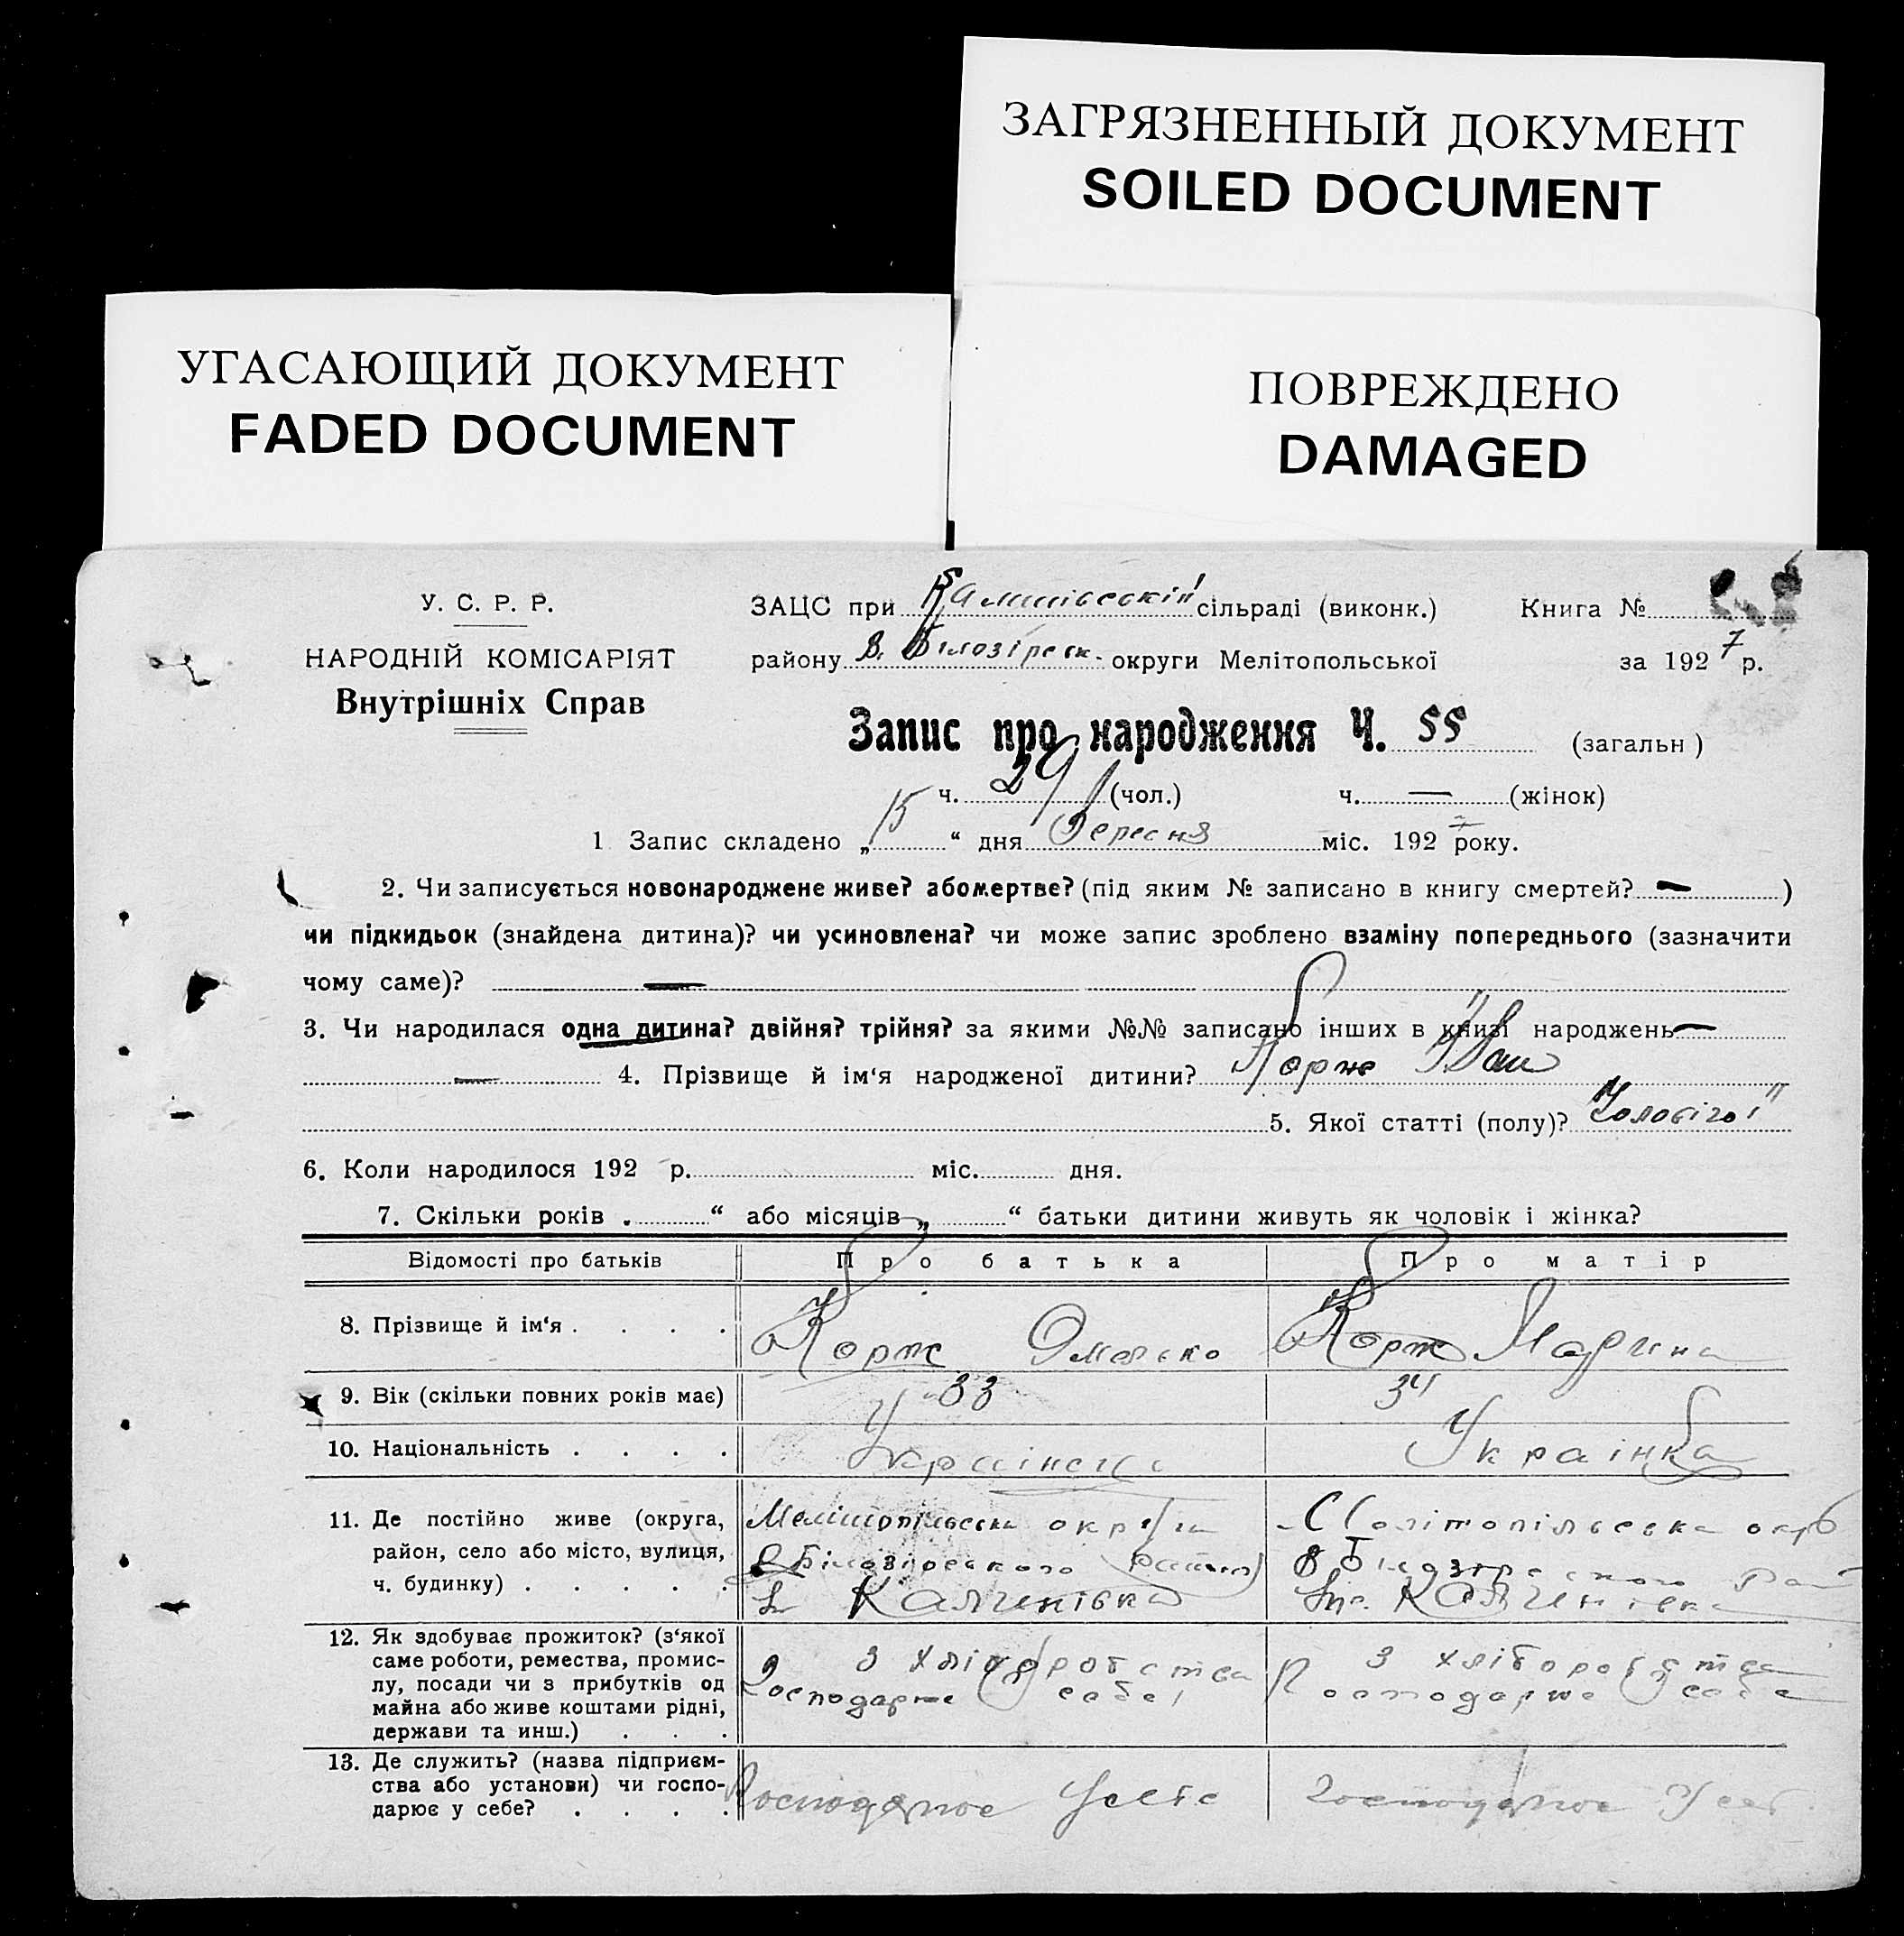 ЗАГРЯЗНЕННЫЙ ДОКУМЕНТ
SOILED DOCUMENT
УГАСАЮЩИЙ ДОКУМЕНТ
FADED DOCUMENT
ПОВРЕЖДЕНО
DAMAGED
У. С. Р. Р.
НАРОДНІЙ КОМІСАРІЯТ
Внутрішніх Справ
ЗАЦС при сільраді (виконк.) Книга №
району В. Білозірськ. округи Мелітопольської за 1927 р.
Запис про народження Ч. 55 (загальн )
ч. 29 (чол.) ч. — (жінок)
1 Запис складено „15“ дня Вересня міс. 1927 року.
2. Чи записується новонароджене живе? або мертве? (під яким № записано в книгу смертей? — )
чи підкидьок (знайдена дитина)? чи усиновлена? чи може запис зроблено взаміну попереднього (зазначити
чому саме)? —
3. Чи народилася одна дитина? двійня? трійня? за якими №№ записано інших в книзі народжень —
— 4. Прізвище й ім‘я народженої дитини? Корж Іван
5. Якої статті (полу)? "Чоловічої"
6. Коли народилося 192 р. міс. дня.
7. Скільки років „ “ або місяців „ “ батьки дитини живуть як чоловік і жінка?
Відомості про батьків Про батька Про матір
8. Прізвище й ім‘я . . . . Корж Омелько Корж Марина
9. Вік (скільки повних років має) 33 34
10. Національність . . . . Українець Українка
11. Де постійно живе (округа, Мелітопільська округи
район, село або місто, вулиця, В Білозірського району
ч. будинку) . . . . . Калинівка Калинівка
12. Як здобуває прожиток? (з‘якої
саме роботи, ремества, промис- З хліборобства З хліборобства
лу, посади чи з прибутків од Господарює себе
майна або живе коштами рідні,
держави та инш.) . . .
13. Де служить? (назва підприєм-
ства або установи) чи госпо-
дарює у себе? . . . . Господарює У себе Господарює У себ.